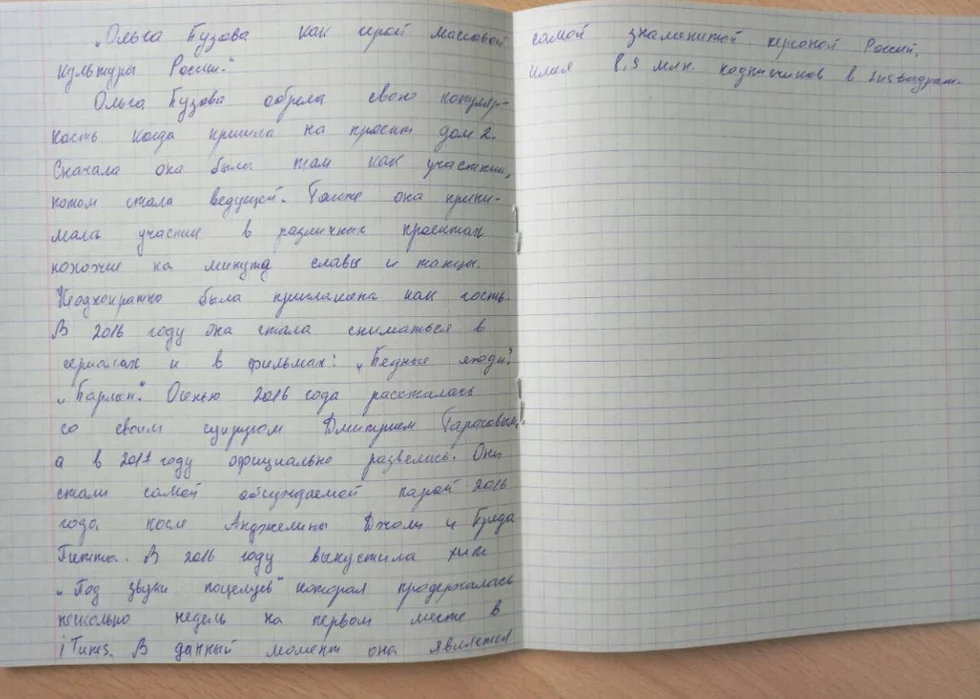 „Ольга Бузова как герой массовой
культуры России."
Ольга Бузова обрела свою популяр-
ность когда пришла на проект дом 2.
Сначала она была там как участник,
потом стала ведущей. Также она прини-
мала участие в различных проектах
похожие на минута славы и танцы.
Неоднократно была приглашена как гость.
В 2016 году она стала сниматься в
сериалах и в фильмах: „Бедные люди",
„Бармен". Осенью 2016 года рассталась
со своим супругом Дмитрием Тарасовым,
а в 2017 году официально развелись. Они
стали самой обсуждаемой парой 2016
года, после Анджелины Джоли и Бреда
Питта. В 2016 году выпустила хит
„Под звуки поцелуев" которая продержалась
несколько недель на первом месте в
iTunes. В данный момент она является
самой знаменитой персоной России,
имея 8,9 млн. подписчиков в Instagram.